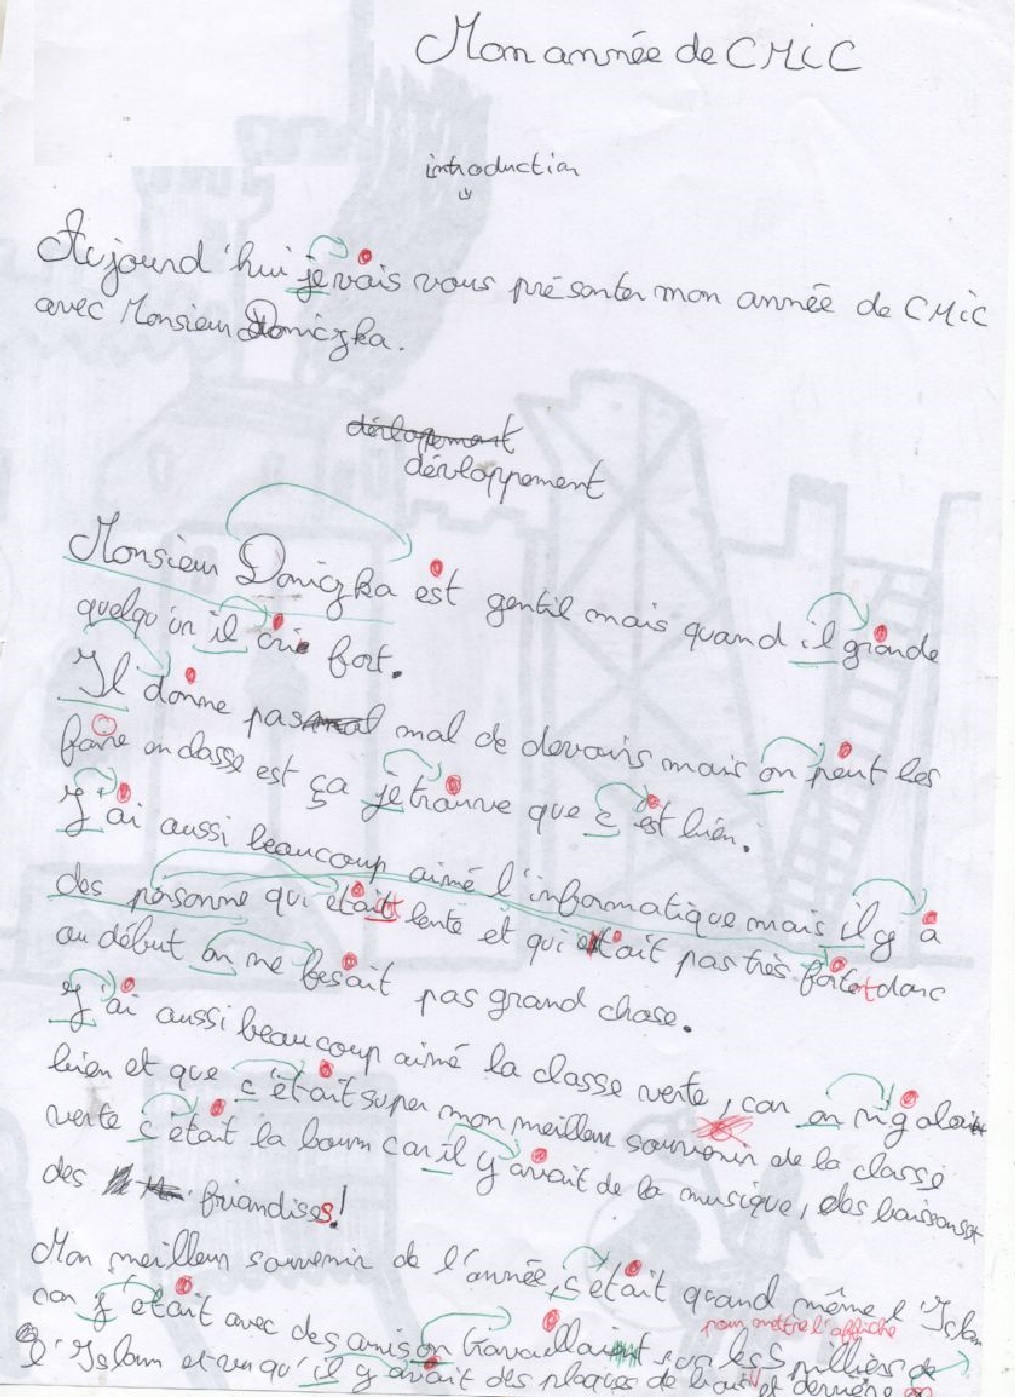 Mon année de CM1C
introduction
Aujourd'hui je vais vous présenter mon année de CM1C
avec Monsieur Doniczka.
dévloppement
dévloppement
Monsieur Doniczka est gentil mais quand il gronde
quelqu'un il crie fort.
Il donne pas mal de devoirs mais on peut les
faire en classe est ça je trouve que c'est bien.
J'ai aussi beaucoup aimé l'informatique mais il y a
des personne qui était lente et qui était pas très forte et donc
au début on ne fesait pas grand chose.
J'ai aussi beaucoup aimé la classe verte, car on rigolait
bien et que c'était super mon meilleur souvenir de la classe
verte c'était la boum car il y avait de la musique, des boissons et
des friandises!
Mon meilleur souvenir de l'année, s'était quand même l'Islam
car j'était avec des amis on travaillait sur les 5 pilliers de
pour mettre l'affiche
l'Islam et vu qu'il y avait des plaques de bois et derrière